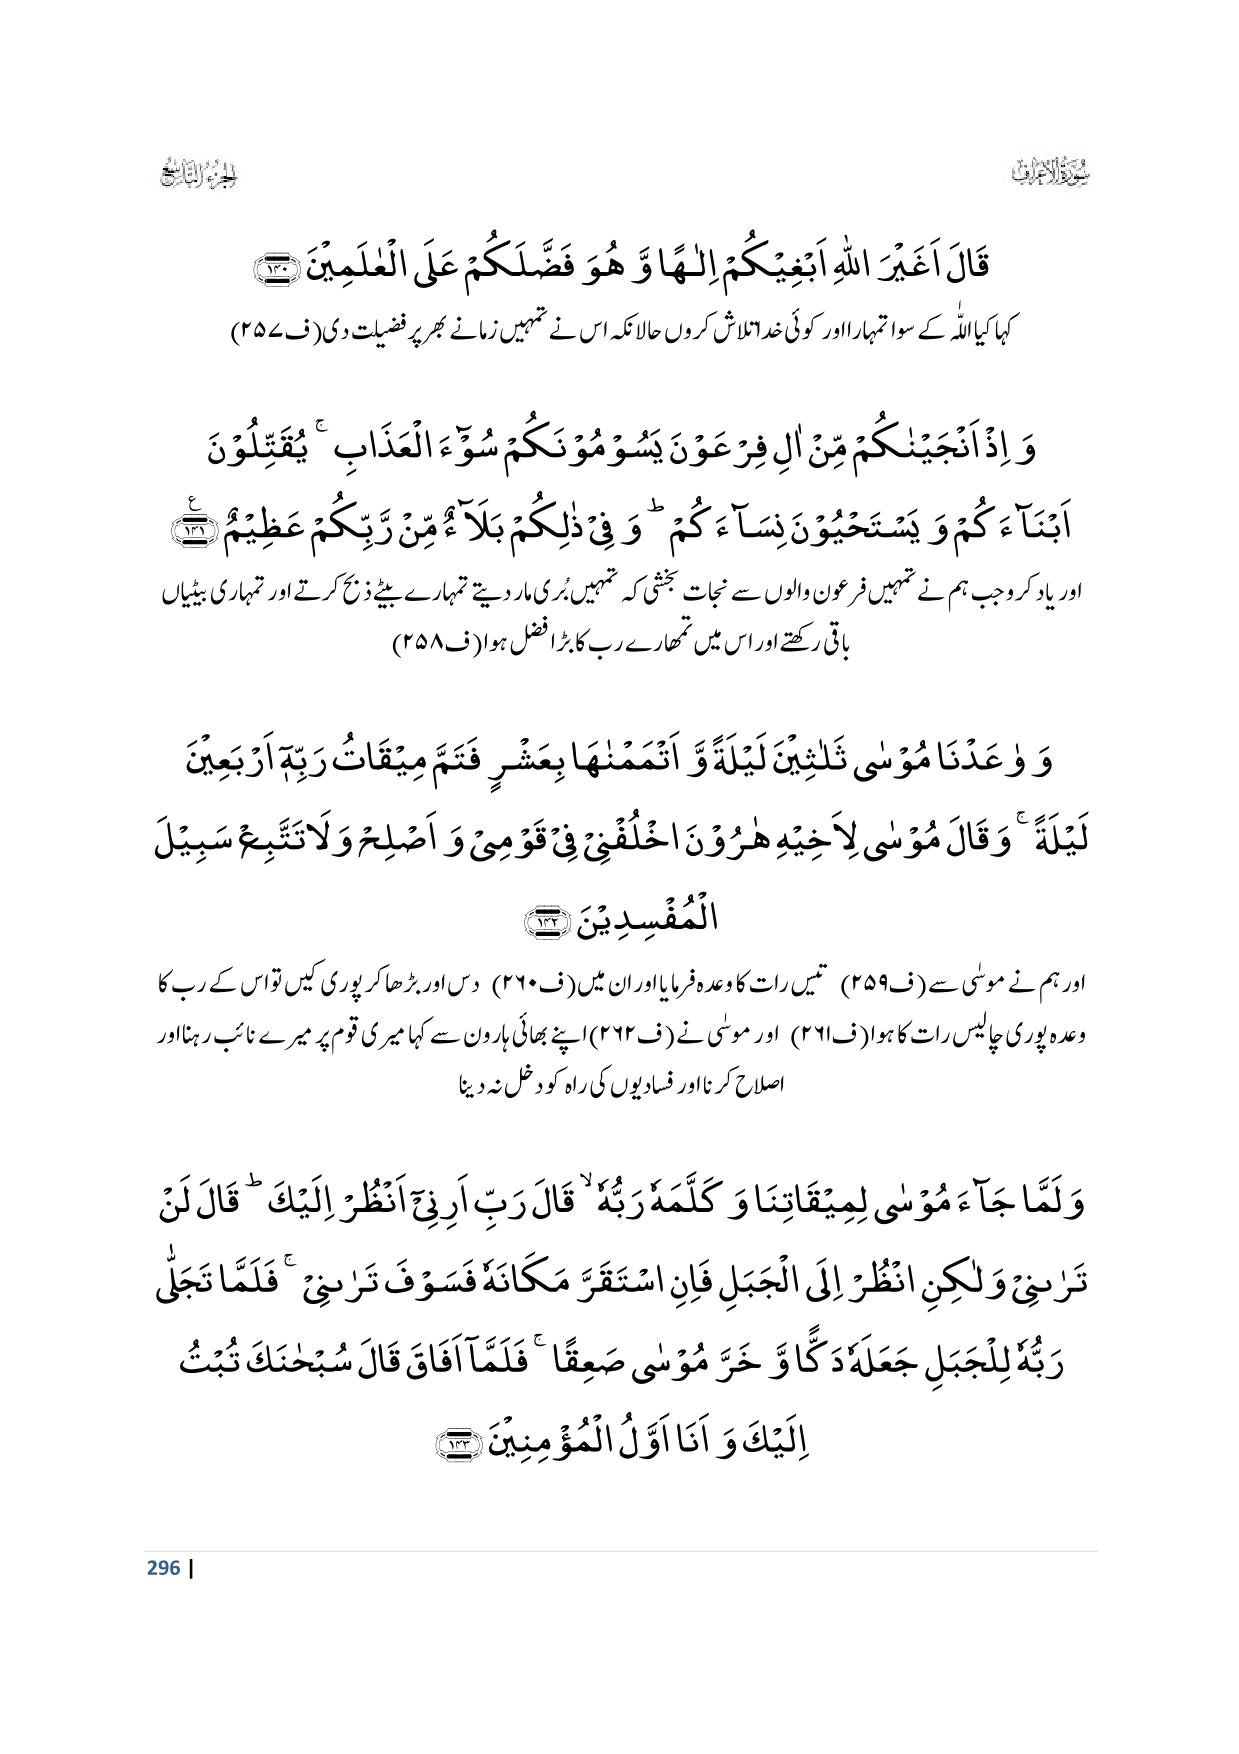 سُورَةُ الْاَعْرَاف
الجزءُ التاسع
قَالَ اَغَیْرَ اللّٰهِ اَبْغِیْكُمْ اِلٰـهًا وَّ هُوَ فَضَّلَكُمْ عَلَی الْعٰلَمِیْنَ ﴿۱۴۰﴾
کہا کیا اللّٰہ کے سوا تمہارا اور کوئی خدا تلاش کروں حالانکہ اس نے تمہیں زمانے بھر پر فضیلت دی(ف۲۵۷)
وَ اِذْ اَنْجَیْنٰكُمْ مِّنْ اٰلِ فِرْعَوْنَ یَسُوْمُوْنَكُمْ سُوْٓءَ الْعَذَابِ ۚ یُقَتِّلُوْنَ
اَبْنَآءَكُمْ وَ یَسْتَحْیُوْنَ نِسَآءَكُمْ ؕ وَ فِیْ ذٰلِكُمْ بَلَآءٌ مِّنْ رَّبِّكُمْ عَظِیْمٌ ﴿۱۴۱﴾ ع
اور یاد کرو جب ہم نے تمہیں فرعون والوں سے نجات بخشی کہ تمہیں بُری مار دیتے تمہارے بیٹے ذبح کرتے اور تمہاری بیٹیاں
باقی رکھتے اور اس میں تمھارے رب کا بڑا فضل ہوا(ف۲۵۸)
وَ وٰعَدْنَا مُوْسٰی ثَلٰثِیْنَ لَیْلَةً وَّ اَتْمَمْنٰهَا بِعَشْرٍ فَتَمَّ مِیْقَاتُ رَبِّهٖۤ اَرْبَعِیْنَ
لَیْلَةً ۚ وَ قَالَ مُوْسٰی لِاَخِیْهِ هٰرُوْنَ اخْلُفْنِیْ فِیْ قَوْمِیْ وَ اَصْلِحْ وَ لَا تَتَّبِعْ سَبِیْلَ
الْمُفْسِدِیْنَ ﴿۱۴۲﴾
اور ہم نے موسٰی سے(ف۲۵۹) تیس رات کا وعدہ فرمایا اور ان میں(ف۲۶۰) دس اور بڑھا کر پوری کیں تو اس کے رب کا
وعدہ پوری چالیس رات کا ہوا(ف۲۶۱) اور موسٰی نے(ف۲۶۲)اپنے بھائی ہارون سے کہا میری قوم پر میرے نائب رہنا اور
اصلاح کرنا اور فسادیوں کی راہ کو دخل نہ دینا
وَ لَمَّا جَآءَ مُوْسٰی لِمِیْقَاتِنَا وَ كَلَّمَهٗ رَبُّهٗ ۙ قَالَ رَبِّ اَرِنِیْۤ اَنْظُرْ اِلَیْكَ ؕ قَالَ لَنْ
تَرٰىنِیْ وَ لٰكِنِ انْظُرْ اِلَی الْجَبَلِ فَاِنِ اسْتَقَرَّ مَكَانَهٗ فَسَوْفَ تَرٰىنِیْ ۚ فَلَمَّا تَجَلّٰی
رَبُّهٗ لِلْجَبَلِ جَعَلَهٗ دَكًّا وَّ خَرَّ مُوْسٰی صَعِقًا ۚ فَلَمَّاۤ اَفَاقَ قَالَ سُبْحٰنَكَ تُبْتُ
اِلَیْكَ وَ اَنَا اَوَّلُ الْمُؤْمِنِیْنَ ﴿۱۴۳﴾
296 |